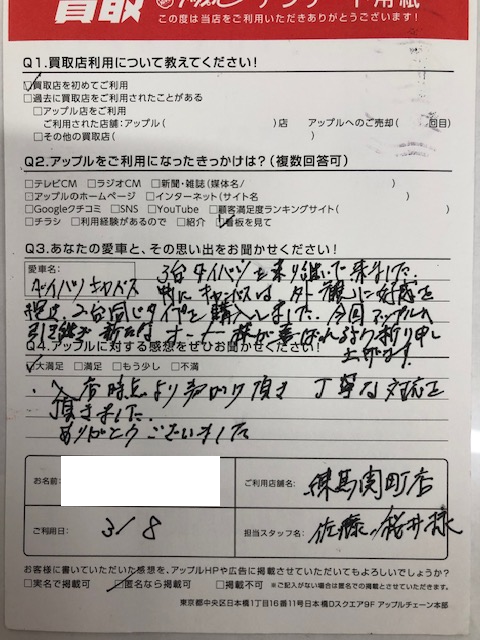 買取 アンケート用紙
この度は当店をご利用いただきありがとうございます!
Q1.買取店利用について教えてください!
□買取店を初めてご利用
□過去に買取店をご利用されたことがある
□アップル店をご利用
ご利用された店舗:アップル( )店 アップルへのご売却( 回目)
□その他の買取店( )
Q2.アップルをご利用になったきっかけは?(複数回答可)
□テレビCM □ラジオCM □新聞・雑誌(媒体名/ )
□アップルのホームページ □インターネット(サイト名 )
□Googleクチコミ □SNS □YouTube □顧客満足度ランキングサイト( )
□チラシ □利用経験があるので □紹介 □看板を見て
Q3.あなたの愛車と、その思い出をお聞かせください!
愛車名: 3台ダイハツを乗り継いで来ました。
ダイハツキャンバス 特にキャンバスは外観に好感を
2台同じタイプを購入しました。今回アップルへ
引継ぎ 新たなオーナー様が喜ばれるよう祈り申し
上げます。
Q4.アップルに対する感想をぜひお聞かせください!
□大満足 □満足 □もう少し □不満
・入店時点より 頂き 丁寧な対応を
頂きました。
ありがとうございました
お名前: ご利用店舗名: 練馬関町店
ご利用日: 3/8 担当スタッフ名: 佐藤・桜井様
お客様に書いていただいた感想を、アップルHPや広告に掲載させていただいてもよろしいでしょうか?
□実名で掲載可 □匿名なら掲載可 □掲載不可 ※ご記入がない場合は匿名での掲載とさせていただきます。
東京都中央区日本橋1丁目16番11号日本橋Dスクエア9F アップルチェーン本部